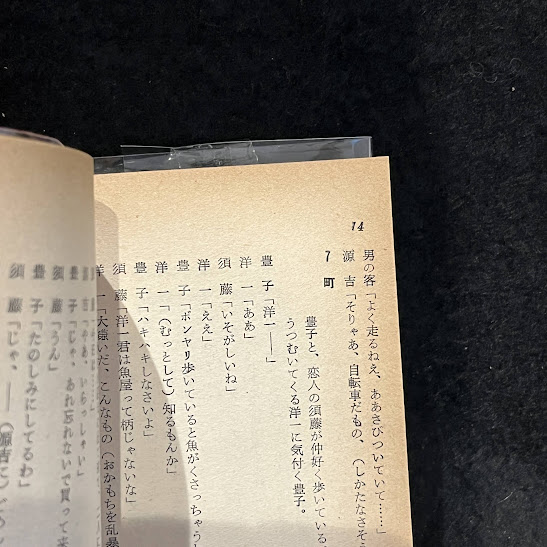 14
男の客「よく走るねえ、ああさびついていて……」
源 吉「そりゃあ、自転車だもの、（しかたなさそう
7 町
豊子と、恋人の須藤が仲好く歩いている
うつむいてくる洋一に気付く豊子。
豊 子「洋一――」
洋 一「ああ」
須 藤「いそがしいね」
洋 一「ええ」
豊 子「ボンヤリ歩いていると魚がくさっちゃうし
洋 一「（むっとして）知るもんか」
豊 子「ハキハキしなさいよ」
須 藤「洋一君は魚屋って柄じゃないな」
洋 一「大嫌いだ、こんなもの（おかもちを乱暴
いらっしゃい」
豊 子「じゃ、あれ忘れないで買って来
須 藤「うん」
豊 子「たのしみにしてるわ」
須 藤「じゃ、――（源吉に）